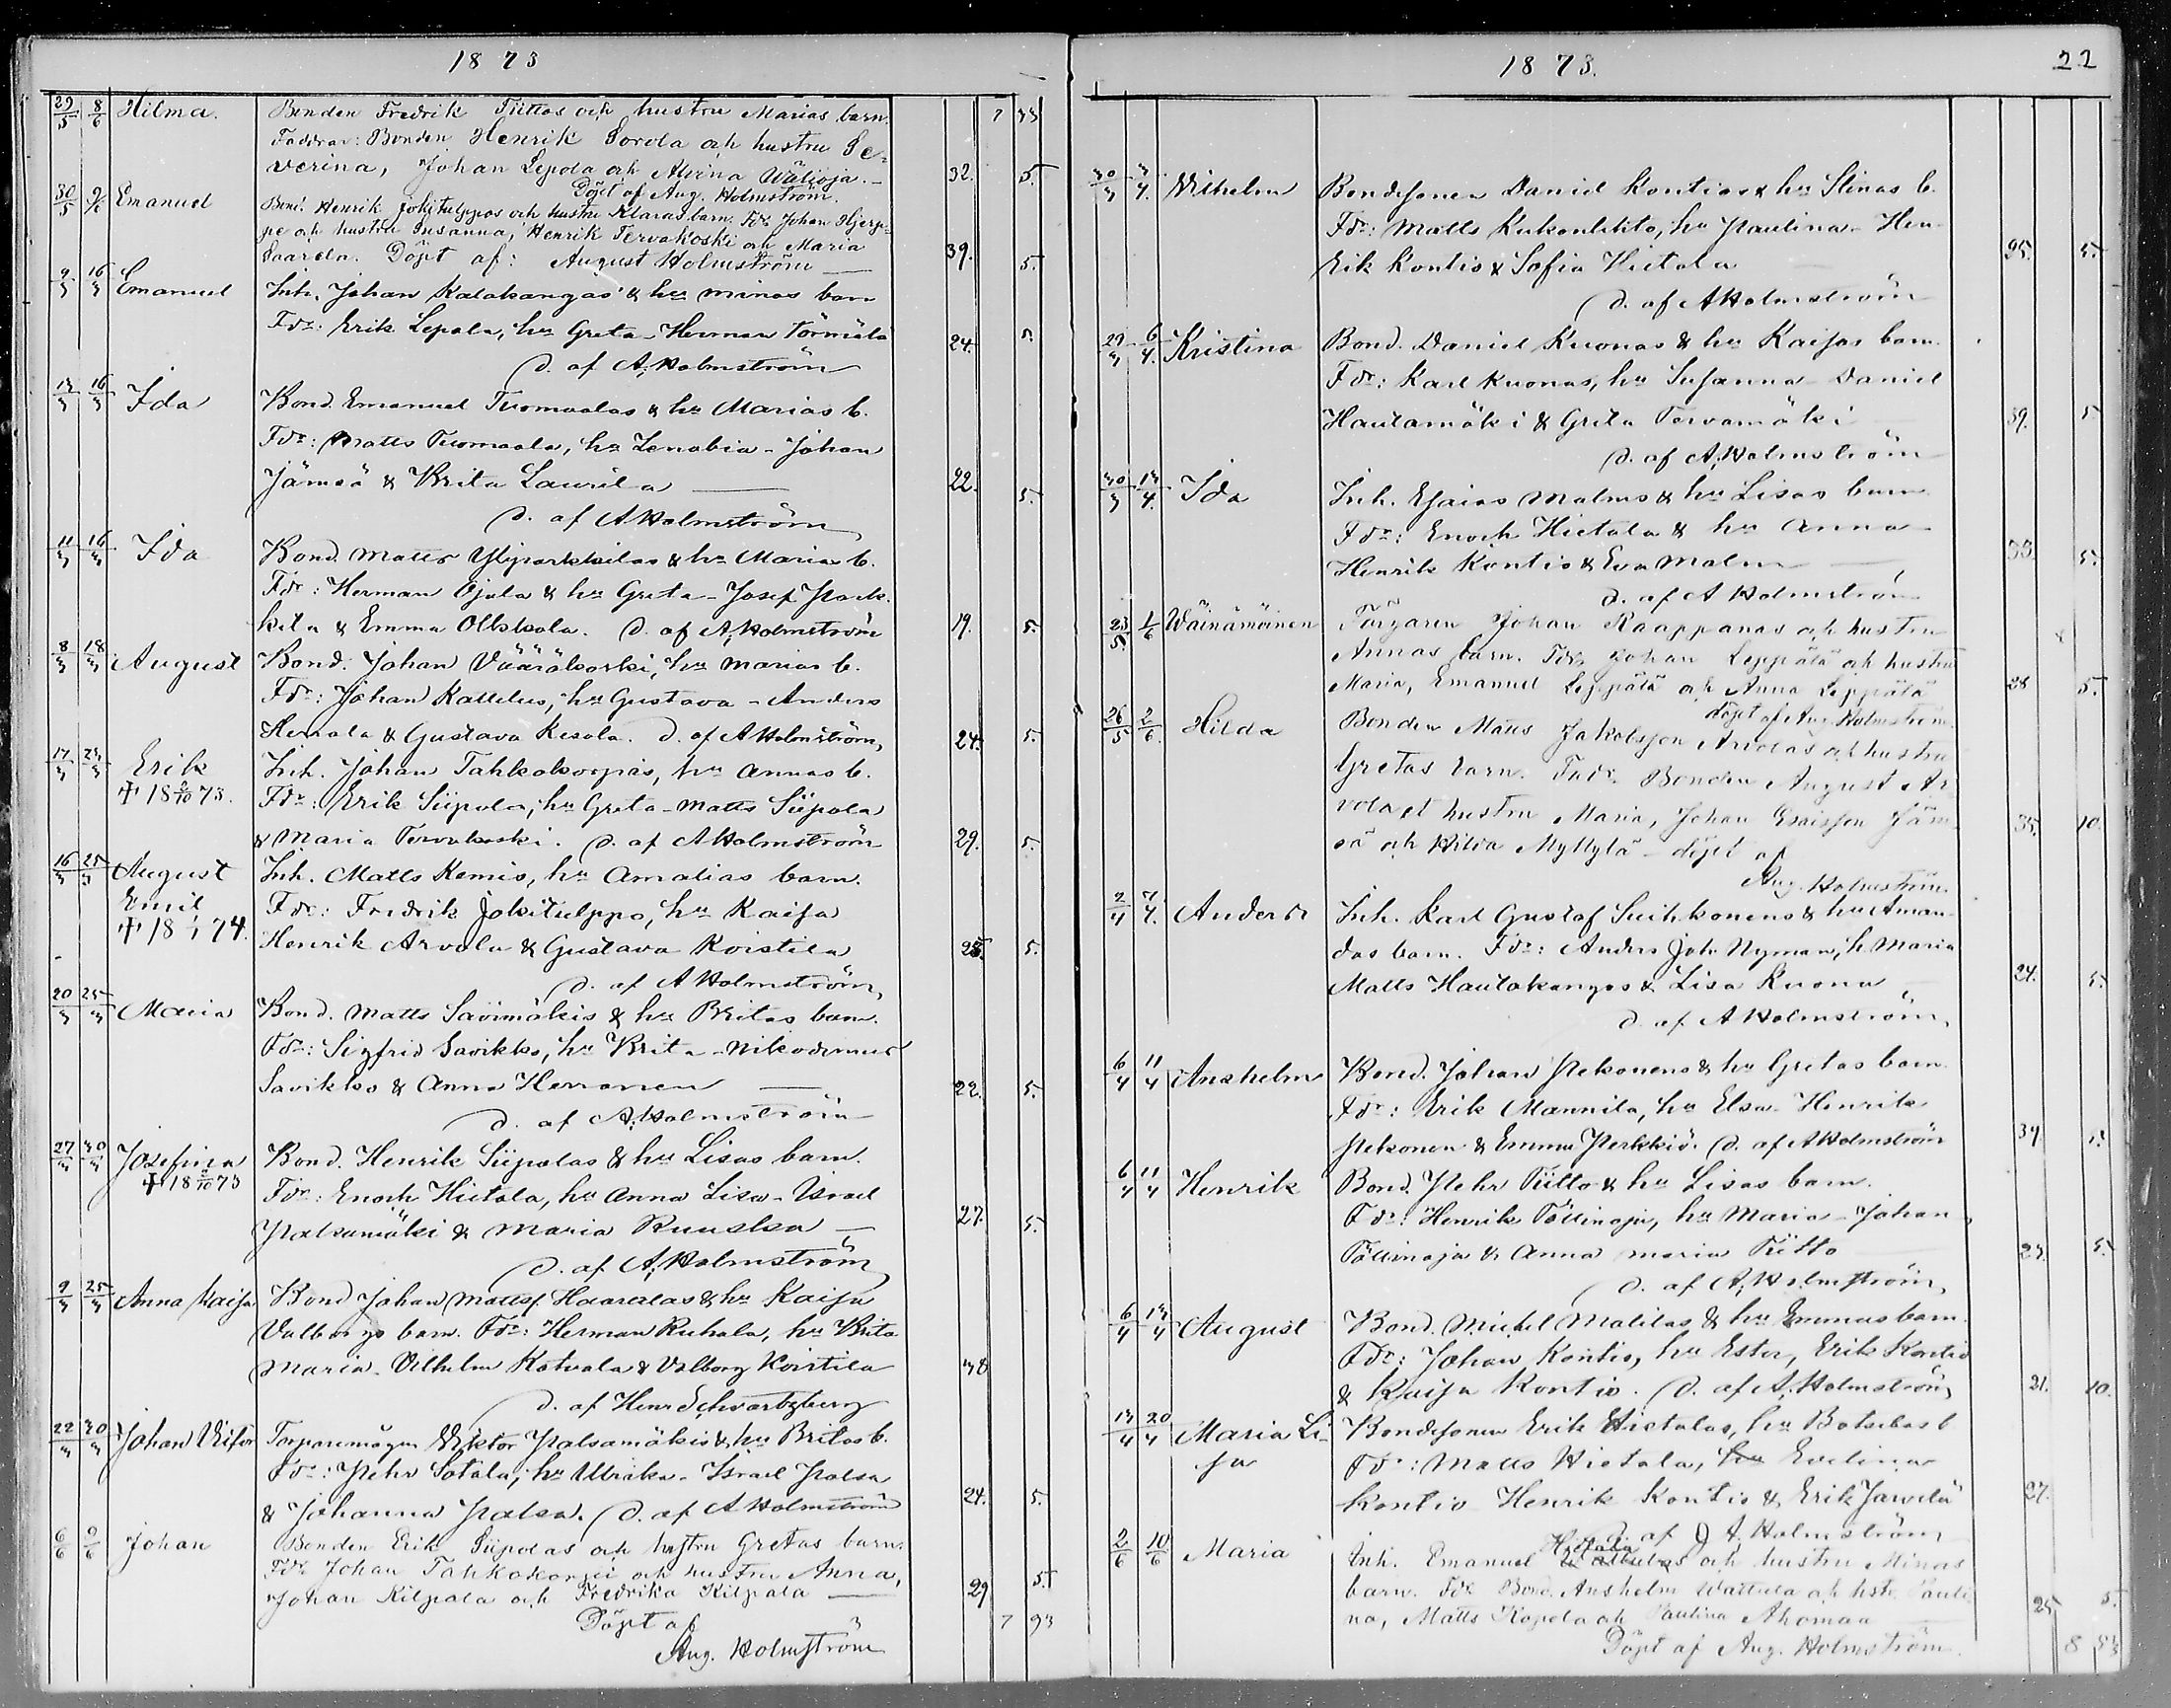 1873
29/5 8/6 Hilma. Bonden Fredrik Tiittos och hustru Marias barn. 7 33
Faddrar: Bonden Henrik Sorola och hustru Se-
verina, Johan Lepola och Alvina Wälioja. 32. 5.
Döpt af Aug. Holmström.
30/5 9/6 Emanuel Bond. Henrik Jokitulppos och hustru Klaras barn. Fdr Johan Hjerp-
pe och hustru Susanna, Henrik Tervakoski och Maria
Saarela. Döpt af: August Holmström 39. 5.
9/3 16/3 Emanuel Inh. Johan Kalakangas' & hu Minas barn
Fdr: Erik Lepola, hu Greta - Herman Törmälä 24. 5.
D. af A. Holmström
13/3 16/3 Ida Bond. Emanuel Tuomaalas & hu Marias b.
Fdr: Matts Tuomaala, hu Zenobia - Johan
Jämsä & Brita Laurila 22. 5.
D. af A Holmström
11/3 16/3 Ida Bond. Matts Yliparkkilas & hu Marias b.
Fdr: Herman Ojala & hu Greta - Josef Park-
kila & Emma Ollkkola. D. af A. Holmström 19. 5.
8/3 18/3 August Bond. Johan Vääräkoski, hu Marias b.
Fdr: Johan Kattelus, hu Gustava - Anders
& Gustava Kesola. D. af A Holmström 24. 5.
17/3 23/3 Erik Inh. Johan Tahkokorpis, hu Annas b.
18 73. Fdr: Erik Siipola, hu Greta - Matts Siipola
& Maria Tervakoski. D. af A Holmström 29. 5.
16/3 25/3 August Inh. Matts Kemis, hu Amalias barn.
Emil Fdr: Fredrik Jokitulppo, hu Kaisa
18 1/1 74. Henrik Arvola & Gustava Koistila 25. 5.
D. af A Holmström
20/3 25/3 Maria Bond. Matts Savimäkis & hu Britas barn.
Fdr: Sigfrid Savikko, hu Brita - Nikodemus
Savikko & Anna Herranen 22. 5.
D. af A. Holmström
27/3 30/3 Josefina Bond. Henrik Siipolas & hu Lisas barn.
18 73 Fdr: Enoch Hietala, hu Anna Lisa - Israel
Palsamäki & Maria Ruuska 27. 5.
D. af A. Holmström
9/3 25/3 Anna Kaisa Bond Johan Mattsf. Haaralas & hu Kaisa
Valborgs barn. Fdr: Herman Ruhala, hu Brita
Maria - Vilhelm Kotvala & Valborg Koistila 38
D. af Henr Schwartzberg
22/3 30/3 Johan Viktor Torparemågen Wiktor Palsamäkis & hu Britas b.
Fdr: Pehr Sotala, hu Ulrika - Israel Palsa
& Johanna Palsa. D. af A Holmström 24. 5.
6/6 9/6 Johan Bonden Erik Siipolas och hustru Gretas barn.
Fdr Johan Tahkokorpi och hustru Anna,
Johan Kilpala och Fredrika Kilpala 29 5.
Döpt af 7 93
Aug. Holmström
1873. 22
30/3 3/4. Wilhelm Bondesonen Daniel Kontios & hu Stinas b.
Fdr: Matts Kukonlehto, hu Paulina - Hen-
rik Kontio & Sofia Hietala 25. 5.
D. af A Holmström
29/3 6/4. Kristina Bond. Daniel Kuonas & hu Kaisas barn.
Fdr: Karl Kuonas, hu Susanna - Daniel
Hautamäki & Greta Tervamäki 39. 5
D. af A. Holmström
30/3 13/4. Ida Inh. Esaias Malms & hu Lisas barn
Fdr: Enoch Hietala & hu Anna -
Henrik Kontio & Eva Malm 33. 5.
D. af A Holmström
23/5 1/6 Wäinämöinen Färgaren Johan Raappanas och hustru
Annas barn. Fdr Johan Leppälä och hustru
Maria, Emanuel Leppälä och Anna Leppälä 28 5.
döpt af Aug. Holmström
26/5 2/6. Hilda Bonden Matts Jakobsson Arvolas och hustru
Gretas barn. Fadr. Bonden August Ar-
vola och hustru Maria, Johan Esaisson Jäm-
sä och Hilda Myllylä - döpt af 35. 10.
Aug. Holmström.
2/4 7/4. Anders Inh. Karl Gustaf Suihkonens & hu Aman-
das barn. Fdr: Anders Joh. Nyman, h. Maria
Matts Hautakangas & Lisa Kuona 24. 5.
D. af A Holmström
6/4 11/4 Anshelm Bond. Johan Pekonens & hu Gretas barn.
Fdr: Erik Mannila, hu Elsa - Henrik
Pekonen & Emma Perkkiö. D. af A Holmström 34 5.
6/4 11/4 Henrik Bond. Pehr Tiitto & hu Lisas barn.
Fdr: Henrik Pöllinoja, hu Maria - Johan
Pöllinoja & Anna Maria Tiitto 23. 5.
D. af A. Holmström
6/4 13/4 August Bond. Mickel Malilas & hu Emmas barn.
Fdr: Johan Kontio, hu Ester, Erik Kontio
& Kaisa Kontio. D. af A. Holmström 21. 10.
13/4 20/4 Maria Li- Bondesonen Erik Hietalas, hu Botsebas b
sa Fdr: Matts Hietala, hu Evelina
Kontio - Henrik Kontio & Erik Jarvelä 27.
D. af A. Holmström
2/6 10/6 Maria Inh. Emanuel Hietala och hustru Minas
barn. Fdr Bond. Anshelm Wattula och hstr. Pauli-
na, Matts Kopola och Paulina Ahomaa 25 5.
Döpt af Aug. Holmström. 8 53